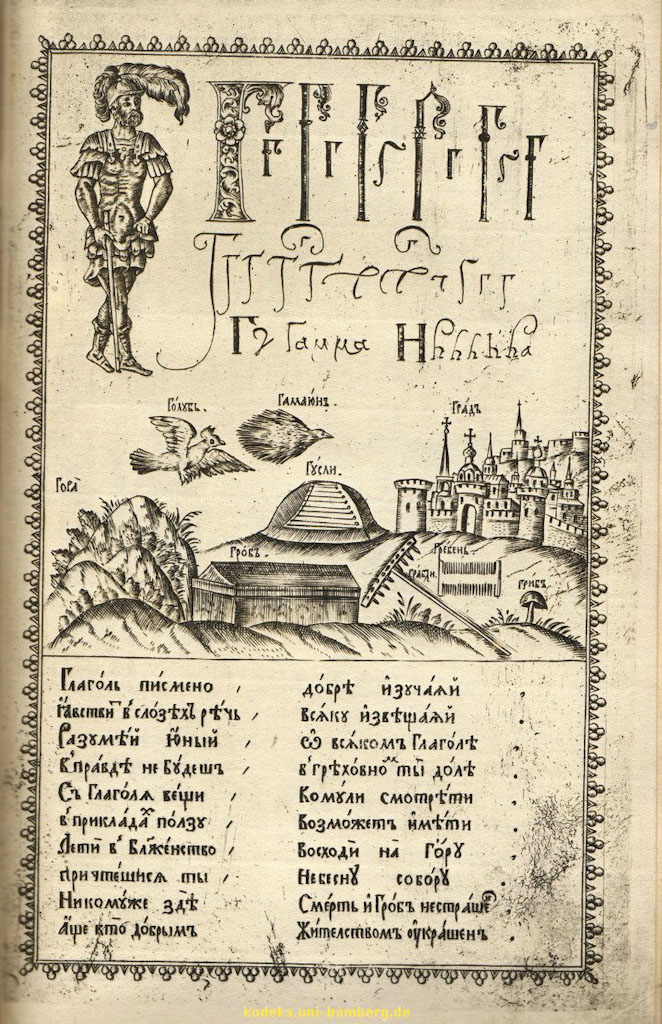 Г Г Г Г Г Г Г Г Г Г
Г Гамма Н
Го́лубь. Гамаю́нъ. Гра́дъ
Гора̀ Гу́сли.
Гро́бъ. Гра́бли. Гре́бень. Гри́бъ
Глаго́ль пи́смено , до́брѣ и҆зуча́ѧй ,
в̾ сло́зѣхъ рѣ́чь , всѧ́ку и҆звѣща́ѧй .
Разумѣ́й ю҆́ный , ѡ҆ всѧ́комъ Глаго́лѣ
в̾пра́вдѣ не бу́дешъ , в̾грѣхо́внⷨо ты̀ до́лѣ .
Съ Глаго́лѧ ве́щи , Ко́мули смотрѣ́ти .
в̾прикла́даⷯ по́лзу , Возмо́жетъ и҆мѣ́ти .
Летѝ в̾ Блаже́нство , Восходѝ на̀ Го́ру .
причте́шисѧ ты̀ , Небе́сну собо́ру .
Никому́же здѣ̀ Сме́рть и҆ Гро́бъ нестра́шеⷩ
а҆́ще кто̀ до́брымъ Жи́телствомъ ᲂу҆кра́шенъ .
kodeks.uni-bamberg.de